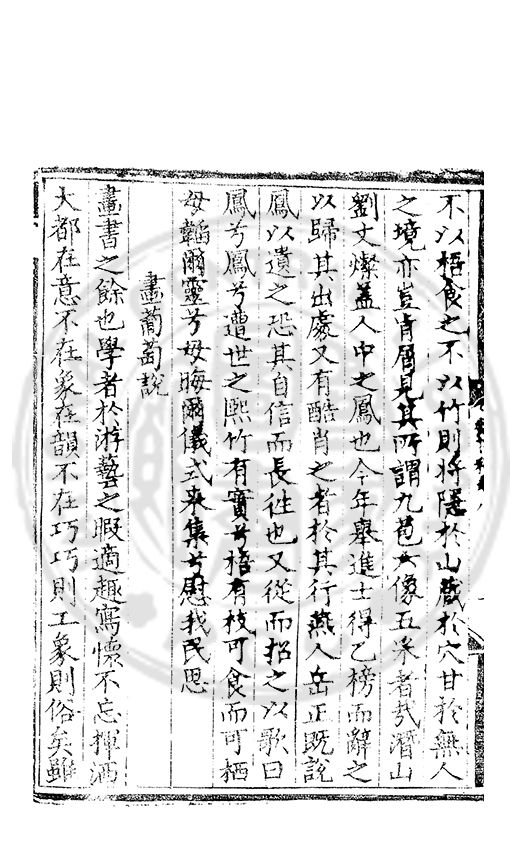 不以梧食之不以竹則將隱於山藏於穴甘於無人
之境亦豈肯屑見其所謂九苞六像五采者哉潛山
劉文燦蓋人中之鳳也今年舉進士得乙榜而辭之
以歸其出處又有酷肖之者於其行燕人岳正既說
鳳以遺之恐其自信而長徃也又從而招之以歌曰
鳳兮鳳兮遭世之熙竹有實兮梧有枝可食而可栖
毋韜爾靈兮毋晦爾儀式來集兮慰我民思
畫葡萄說
畫書之餘也學者於游藝之暇適趣寫懷不忘揮洒
大都在意不在象在韻不在巧巧則工象則俗矣雖